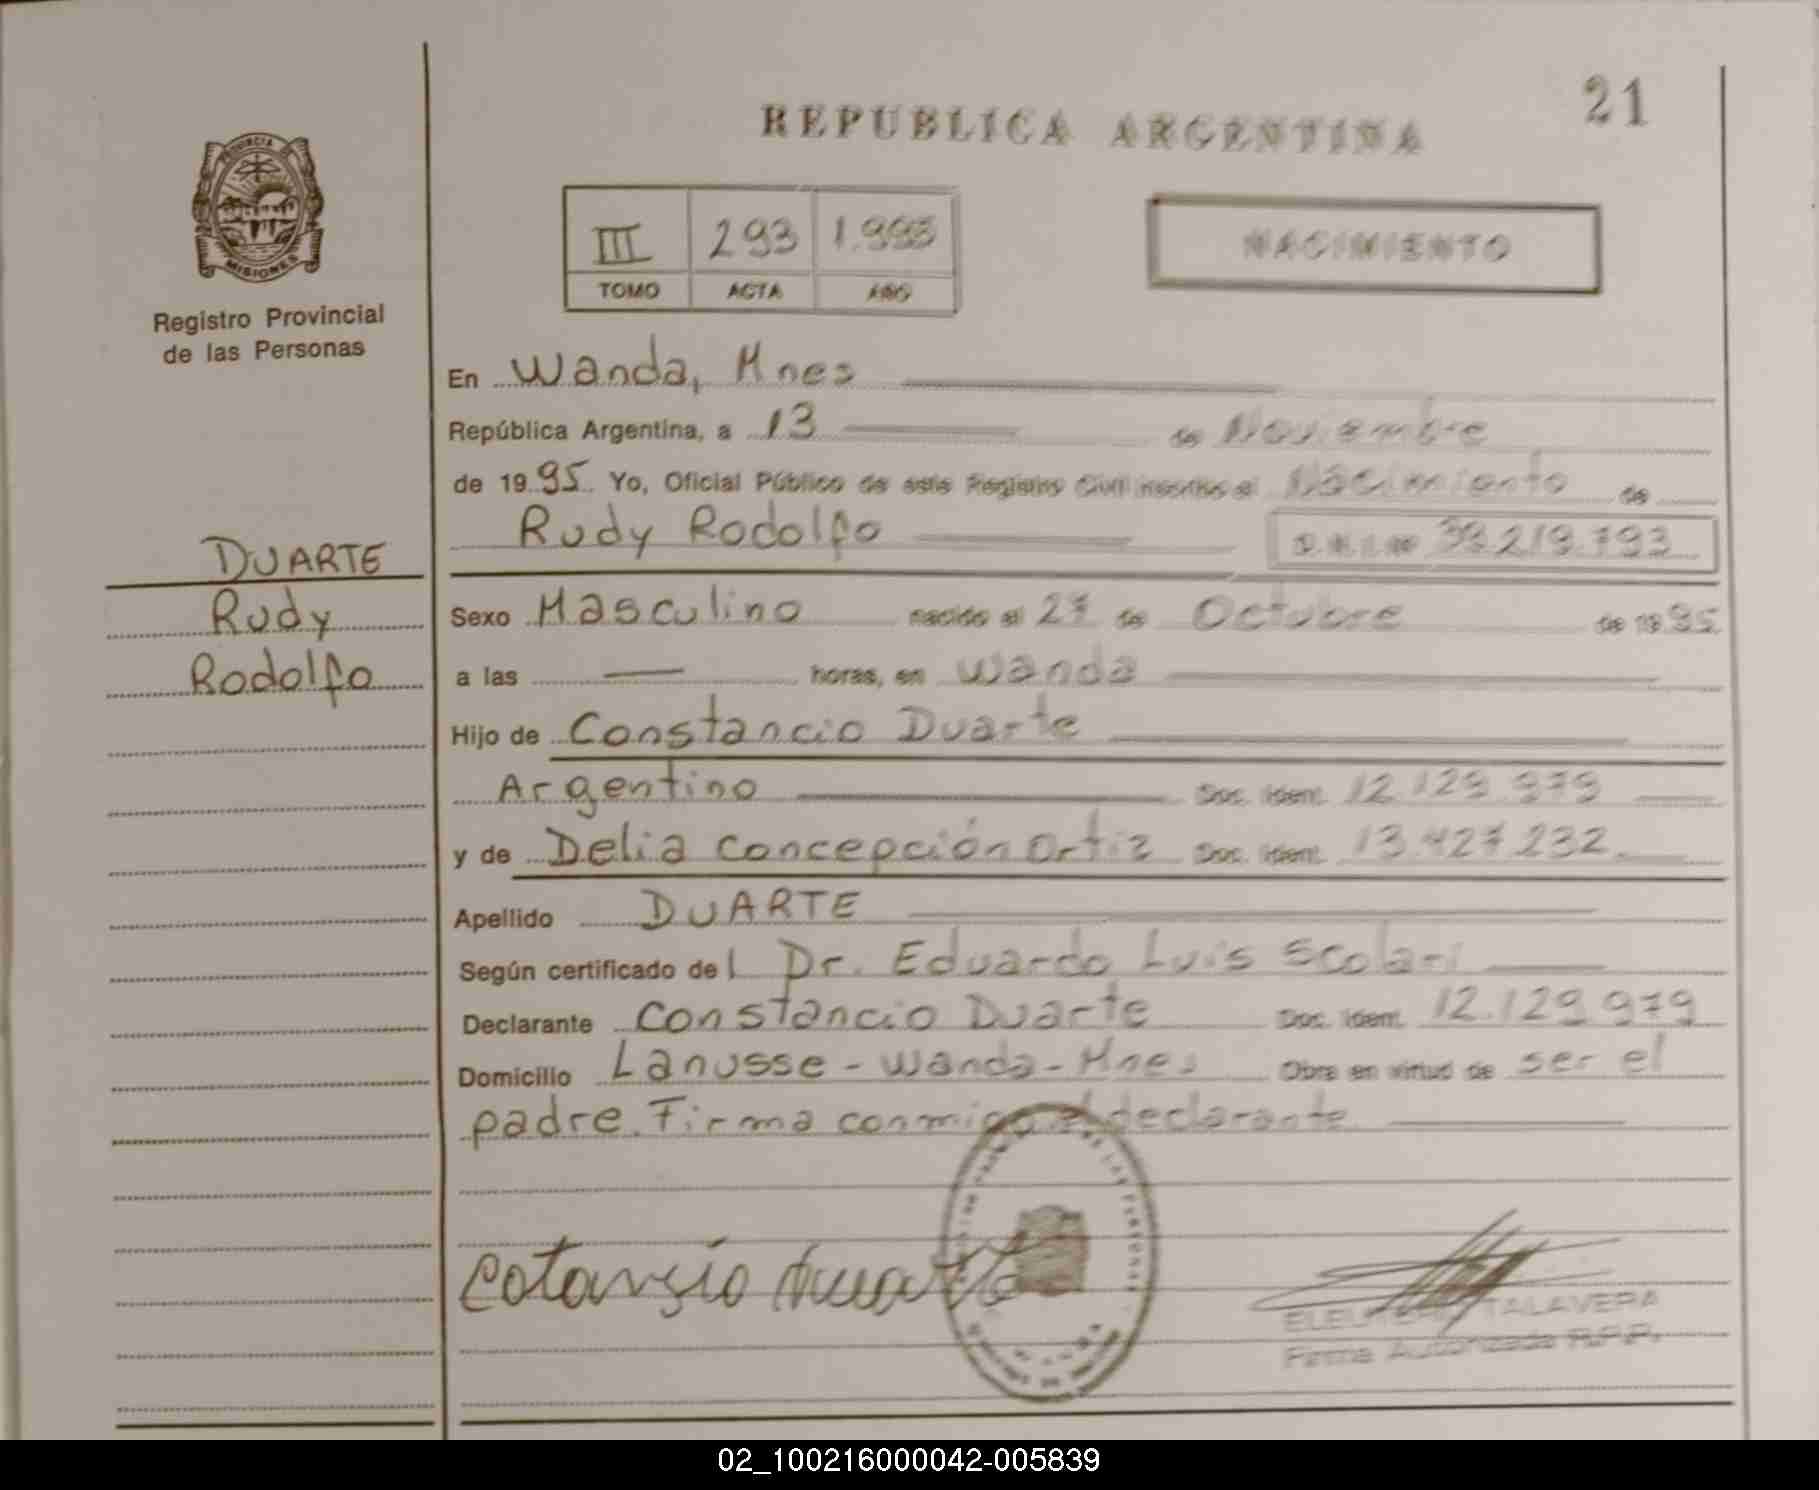 21
REPUBLICA ARGENTINA
PROVINCIA DE
MISIONES
Registro Provincial
de las Personas
III 293 1.995
TOMO ACTA AÑO
NACIMIENTO
En Wanda, Mnes
República Argentina, a 13 de Noviembre
de 1995 Yo, Oficial Público de este Registro Civil inscribo el Nacimiento de
Rudy Rodolfo D.N.I. Nº 39.219.793
DUARTE
Rudy
Rodolfo
Sexo Masculino nacido el 27 de Octubre de 1995
a las — horas, en Wanda
Hijo de Constancio Duarte
Argentino Doc. Ident. 12.129.979
y de Delia Concepción Ortiz Doc. Ident. 13.427.232
Apellido DUARTE
Según certificado del Dr. Eduardo Luis Scolari
Declarante Constancio Duarte Doc. Ident. 12.129.979
Domicilio Lanusse - Wanda - Mnes Obra en virtud de ser el
padre. Firma conmigo el declarante
Cotansio Duarte
TALAVERA
Firma Autorizada R.P.P.
02_100216000042-005839